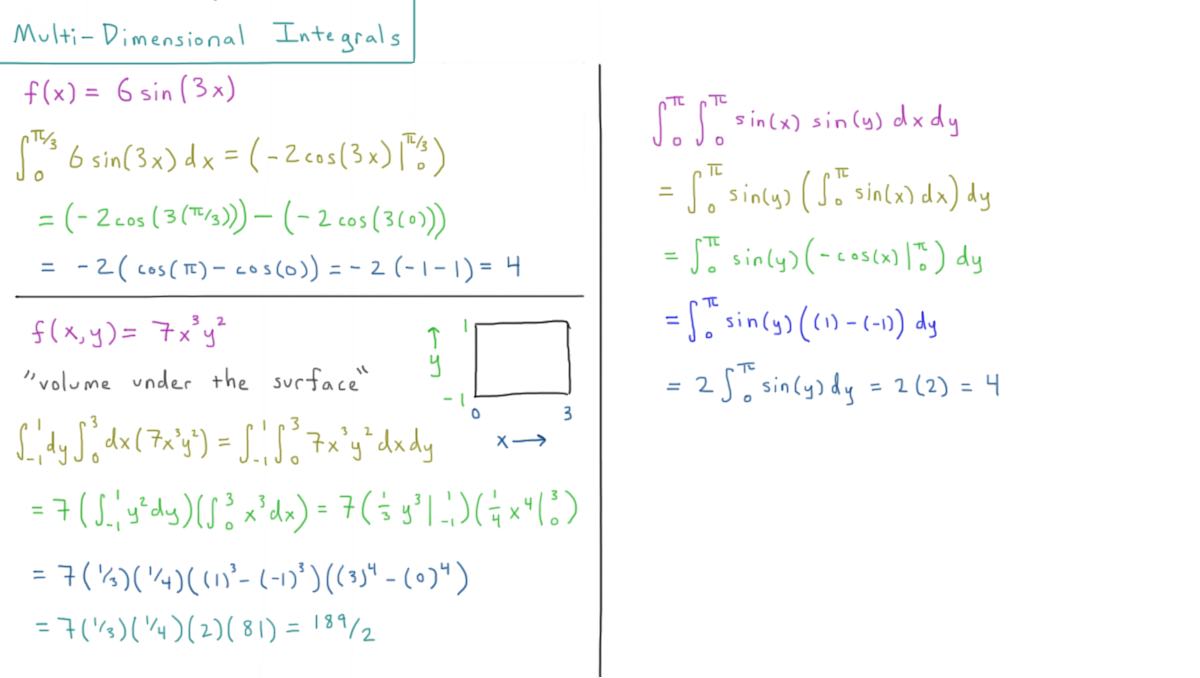 Multi-Dimensional Integrals
f(x) = 6 sin(3x)
∫₀^(π/3) 6 sin(3x) dx = (-2cos(3x)|₀^(π/3))
= (-2cos(3(π/3))) - (-2cos(3(0)))
= -2(cos(π) - cos(0)) = -2(-1-1) = 4
f(x,y) = 7x³y²
"volume under the surface"
1
↑
y
-1
0
3
x→
∫₋₁¹dy∫₀³dx(7x³y²) = ∫₋₁¹∫₀³7x³y²dxdy
= 7(∫₋₁¹y²dy)(∫₀³x³dx) = 7(1/3 y³|₋₁¹)(1/4 x⁴|₀³)
= 7(1/3)(1/4)((1)³-(-1)³)((3)⁴-(0)⁴)
= 7(1/3)(1/4)(2)(81) = 189/2
∫₀^π ∫₀^π sin(x) sin(y) dxdy
= ∫₀^π sin(y) (∫₀^π sin(x) dx) dy
= ∫₀^π sin(y)(-cos(x)|₀^π) dy
= ∫₀^π sin(y)((1)-(-1)) dy
= 2∫₀^π sin(y)dy = 2(2) = 4